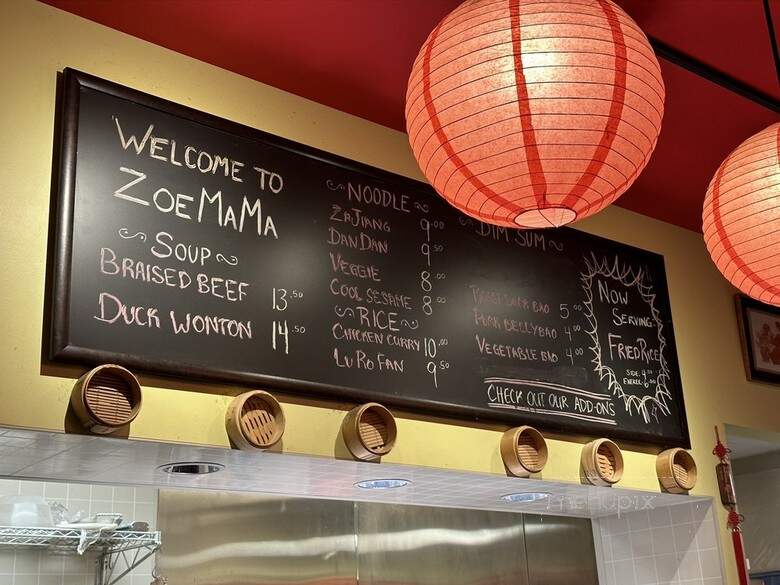 WELCOME TO
ZOE MAMA
SOUP
BRAISED BEEF 13.50
DUCK WONTON 14.50
NOODLE
ZAJIANG 9.00
DAN DAN 9.50
VEGGIE 8.00
COOL SESAME 8.00
RICE
CHICKEN CURRY 10.00
LU RO FAN 9.50
DIM SUM
BAO 5.00
PORK BELLY BAO 4.00
VEGETABLE BAO 4.00
CHECK OUT OUR ADD-ONS
NOW
SERVING:
FRIED RICE
SIDE: 4.00